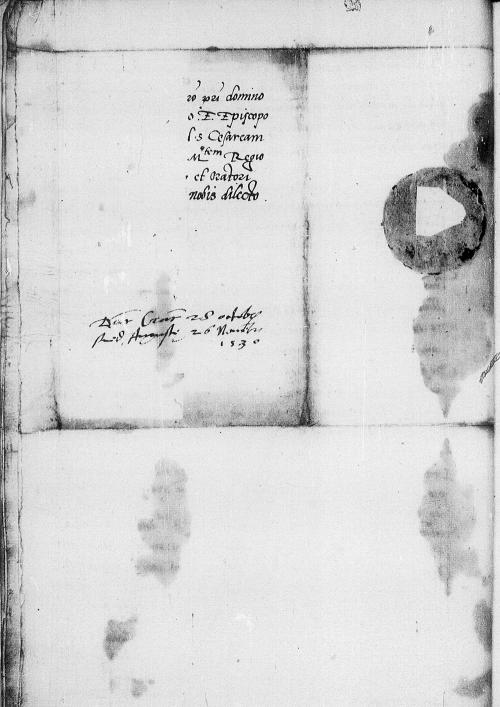 rō pri domino
o E. Episcopo
l s Cesaream
M.tem Regio
et Oratori
nobis dilecto
28 octobr
Auguste 26 Novembr
1530